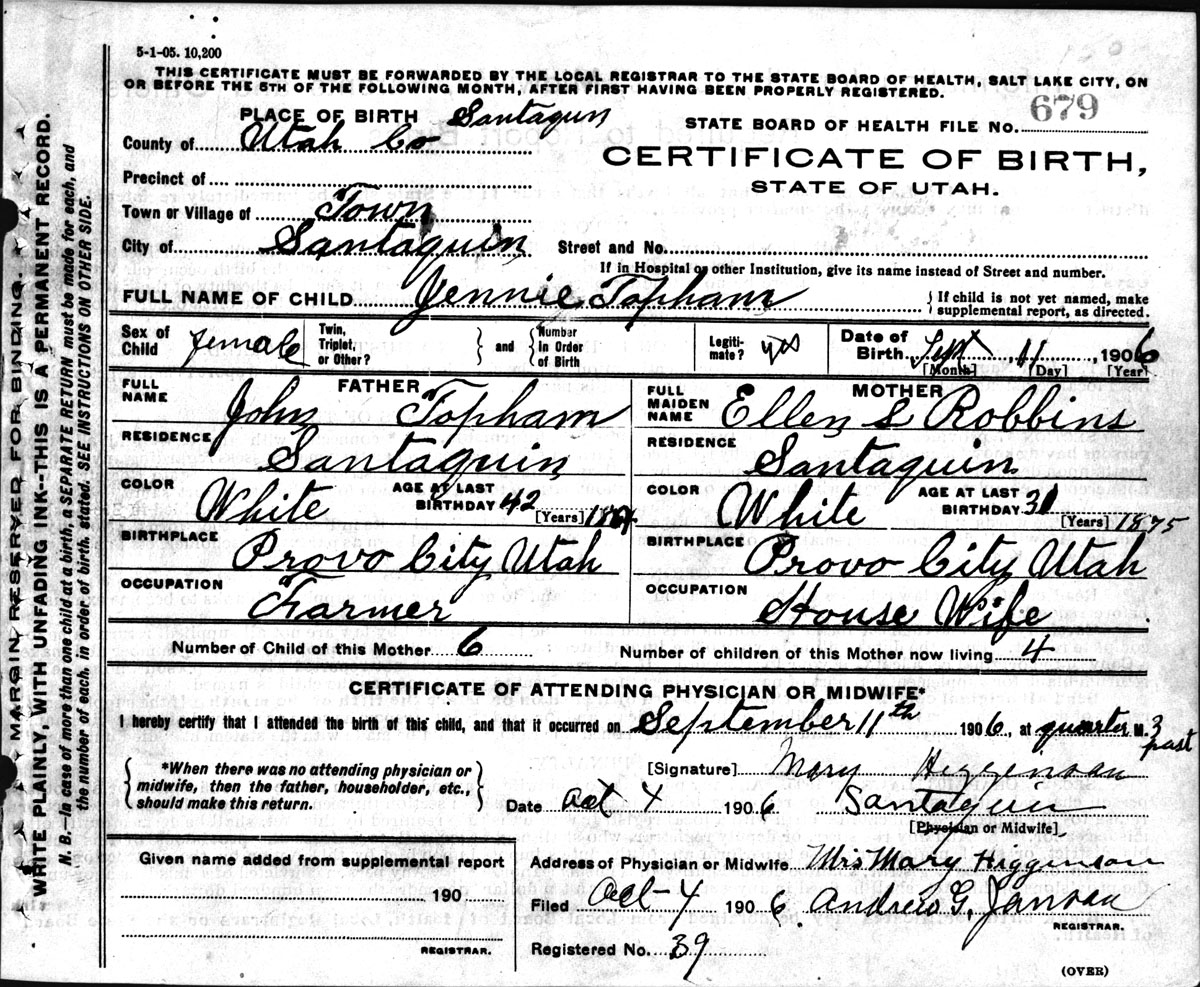 5-1-05. 10,200
THIS CERTIFICATE MUST BE FORWARDED BY THE LOCAL REGISTRAR TO THE STATE BOARD OF HEALTH, SALT LAKE CITY, ON
OR BEFORE THE 5TH OF THE FOLLOWING MONTH, AFTER FIRST HAVING BEEN PROPERLY REGISTERED.
MARGIN RESERVED FOR BINDING.
WRITE PLAINLY, WITH UNFADING INK--THIS IS A PERMANENT RECORD.
N. B.—In case of more than one child at a birth, a SEPARATE RETURN must be made for each, and
the number of each, in order of birth, stated. SEE INSTRUCTIONS ON OTHER SIDE.
PLACE OF BIRTH Santaquin
STATE BOARD OF HEALTH FILE NO. 679
County of Utah Co
CERTIFICATE OF BIRTH,
STATE OF UTAH.
Precinct of
Town or Village of Town
City of Santaquin Street and No.
If in Hospital or other Institution, give its name instead of Street and number.
FULL NAME OF CHILD Jennie Topham { If child is not yet named, make
supplemental report, as directed.
Sex of Child female Twin, Triplet, or Other? } and { Number In Order of Birth Legiti-mate? yes Date of Birth Sept 11, 1906
[Month] [Day] [Year]
FATHER
FULL NAME John Topham
RESIDENCE Santaquin
COLOR White AGE AT LAST BIRTHDAY 42 [Years] 1864
BIRTHPLACE Provo City Utah
OCCUPATION Farmer
MOTHER
FULL MAIDEN NAME Ellen S Robbins
RESIDENCE Santaquin
COLOR White AGE AT LAST BIRTHDAY 31 [Years] 1875
BIRTHPLACE Provo City Utah
OCCUPATION House Wife
Number of Child of this Mother 6 Number of children of this Mother now living 4
CERTIFICATE OF ATTENDING PHYSICIAN OR MIDWIFE*
I hereby certify that I attended the birth of this child, and that it occurred on September 11th 1906, at quarter M. 3
past
{ *When there was no attending physician or
midwife, then the father, householder, etc.,
should make this return. }
[Signature] Mary Higgenson
Date Oct 4 1906 Santaquin
[Physician or Midwife]
Given name added from supplemental report
190
REGISTRAR.
Address of Physician or Midwife Mrs Mary Higginson
Filed Oct- 4 1906. Andrew G. Janson
REGISTRAR.
Registered No. 39
(OVER)